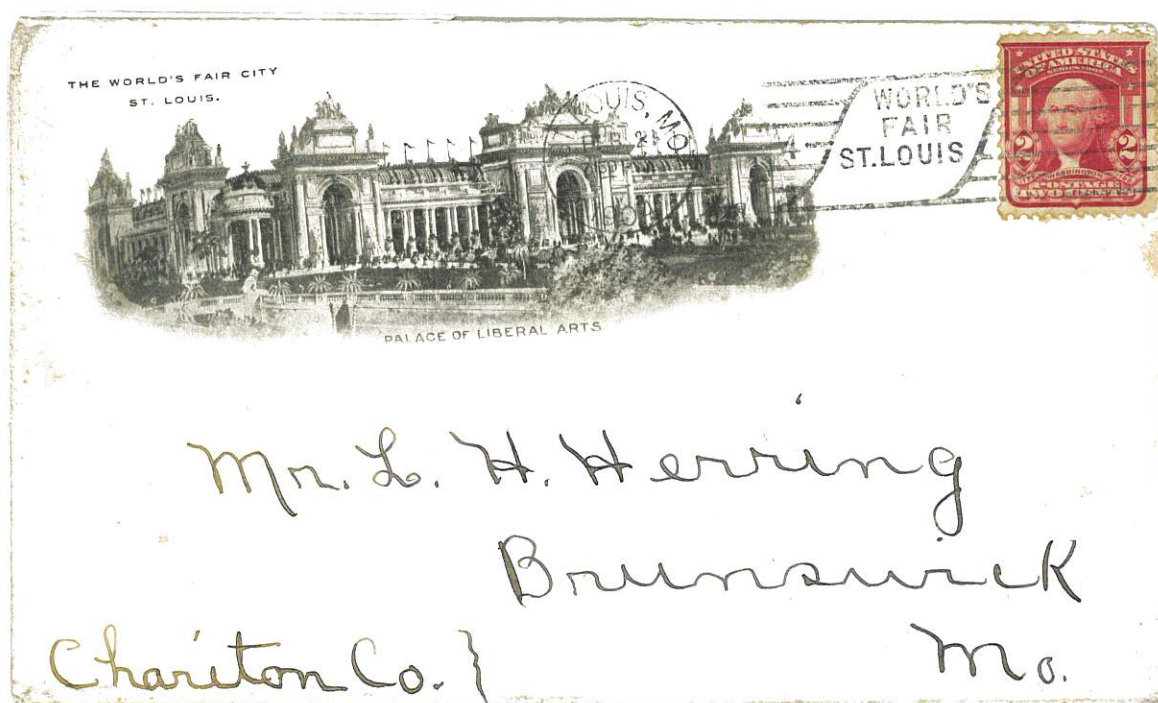 THE WORLD'S FAIR CITY
ST. LOUIS.
LOUIS, MO
WORLD'S
FAIR
ST. LOUIS
UNITED STATES
OF AMERICA
SERIES 1902
2 2
WASHINGTON
POSTAGE
TWO CENTS
PALACE OF LIBERAL ARTS
Mr. L. H. Herring
Brunswick
Chariton Co. }
Mo.